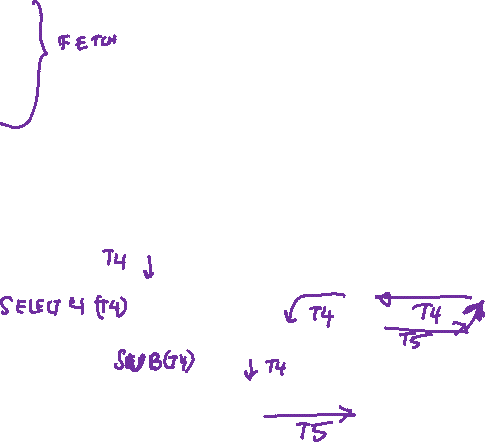 FETCH
T4
SELECT 4 (T4)
T4
T4
T5
SUB(T4)
T4
T5